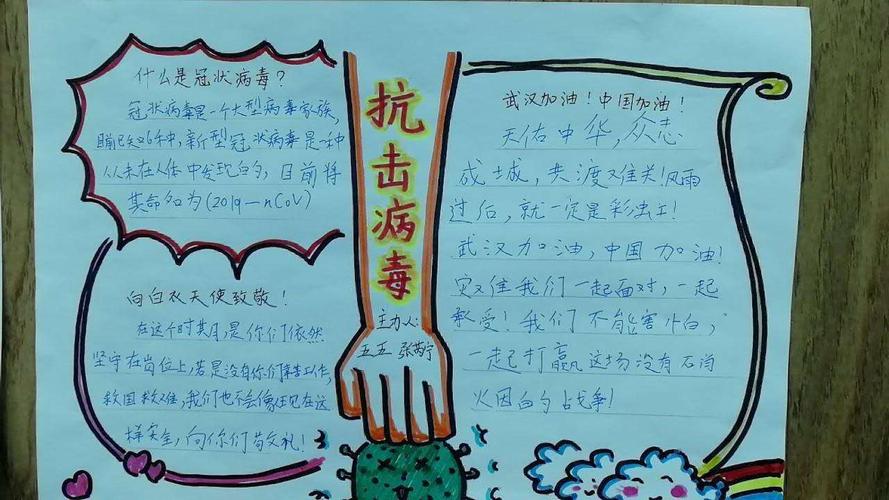 什么是冠状病毒？
冠状病毒是一个大型病毒家族，
目前已知6种，新型冠状病毒是一种
从未在人体中发现的，目前将
其命名为(2019—nCoV)
向白衣天使致敬！
在这个时其月，是你们依然
坚守在岗位上，若是没有你们辛苦工作，
救国救难，我们也不会像现在这
样安全，向你们敬礼！
抗击病毒
主力人：
五五 张芮宁
武汉加油！中国加油！
天佑中华，众志
成城，共渡难关！风雨
过后，就一定是彩虹！
武汉加油，中国加油！
灾难我们一起面对，一起
承受！我们不能害怕，
一起打赢这场没有石肖
火因的战争！